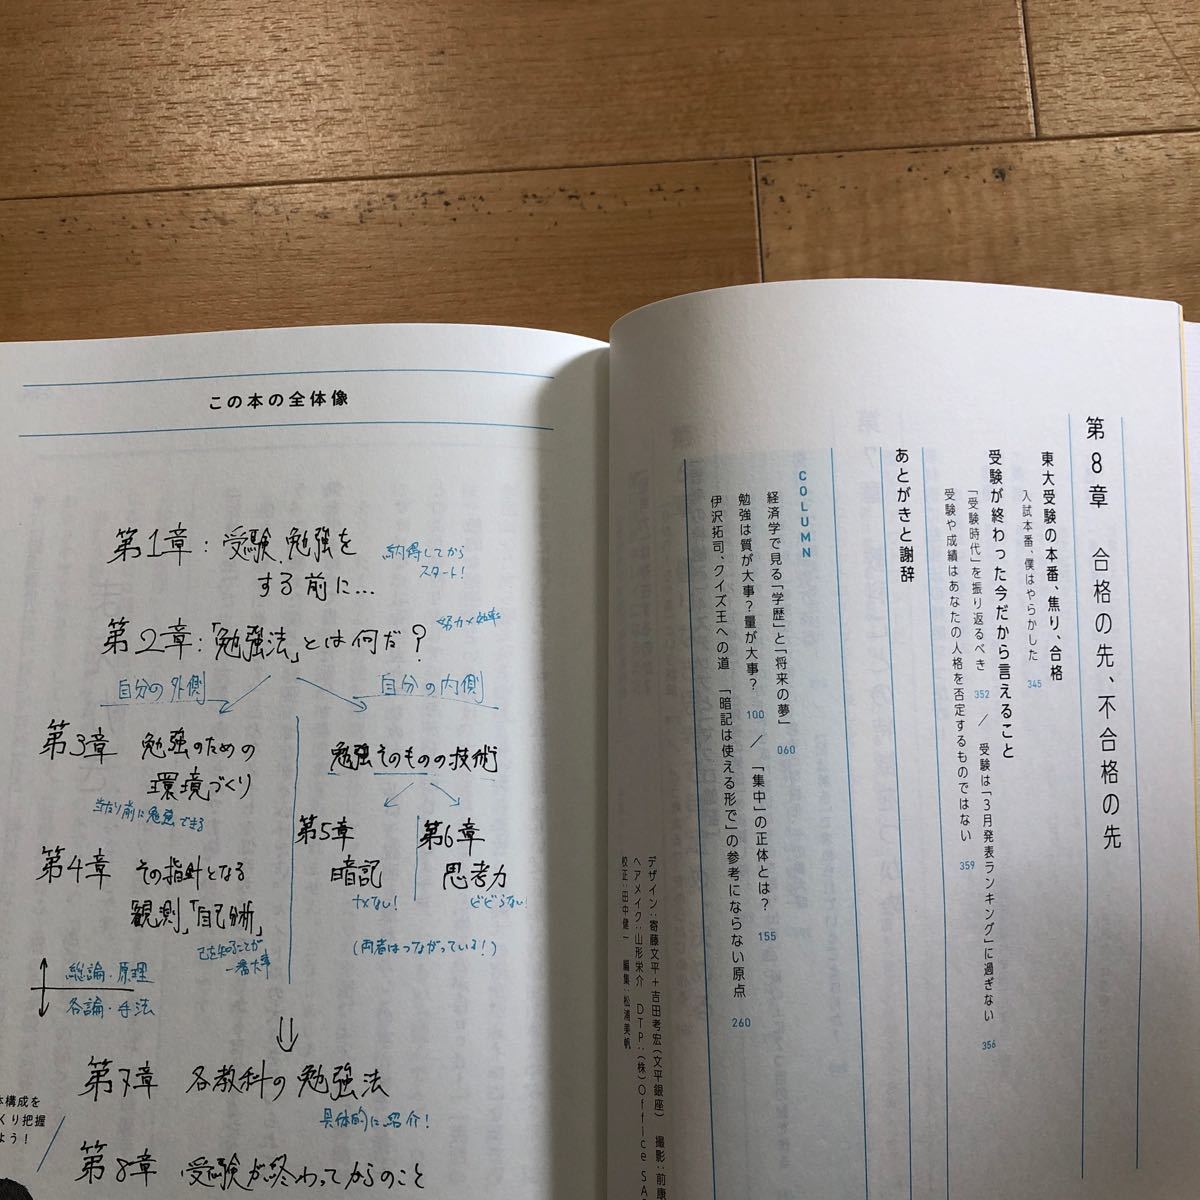 この本の全体像
第1章:受験勉強を
する前に…
納得してから
スタート!
第2章:「勉強法」とは何だ?
努力×効率
自分の外側
自分の内側
第3章 勉強のための
環境づくり
当たり前に勉強できる
第4章 その指針となる
観測、「自己分析」
己を知ることが
一番大事
勉強そのものの技術
第5章
暗記
ナメない!
第6章
思考力
ビビらない!
(両者はつながっている!)
総論・原理
各論・手法
第7章 各教科の勉強法
具体的に紹介!
第8章 受験が終わってからのこと
体構成を
くり把握
よう!
第8章 合格の先、不合格の先
東大受験の本番、焦り、合格
入試本番、僕はやらかした 345
受験が終わった今だから言えること
「受験時代」を振り返るべき 352 / 受験は「3月発表ランキング」に過ぎない 356
受験や成績はあなたの人格を否定するものではない 359
あとがきと謝辞
COLUMN
経済学で見る「学歴」と「将来の夢」 060
勉強は質が大事?量が大事? 100 / 「集中」の正体とは? 155
伊沢拓司、クイズ王への道 「暗記は使える形で」の参考にならない原点 260
デザイン:寄藤文平+吉田考宏(文平銀座) 撮影:前康
ヘアメイク:山形栄介 DTP:(株)Office SA
校正:田中健一 編集:松浦美帆